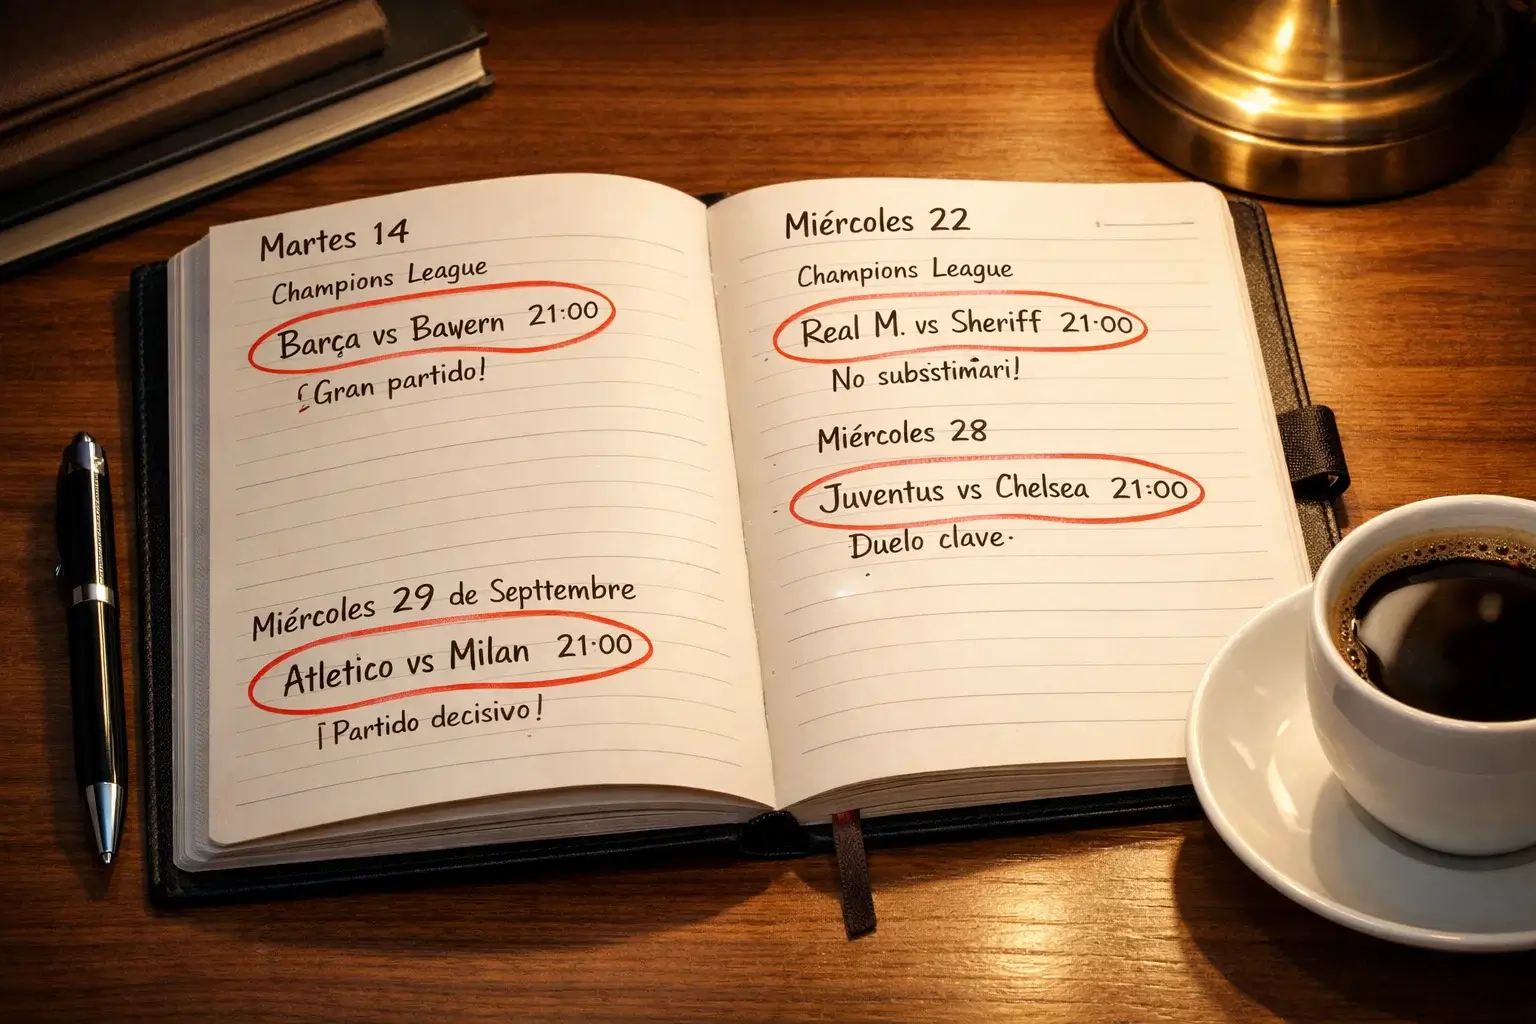 Martes 14
Champions League
Barça vs Bawern 21:00
¡Gran partido!
Miércoles 29 de Septtembre
Atletico vs Milan 21·00
¡Partido decisivo!
Miércoles 22
Champions League
Real M. vs Sheriff 21·00
No subsstimari!
Miércoles 28
Juventus vs Chelsea 21:00
Duelo clave.